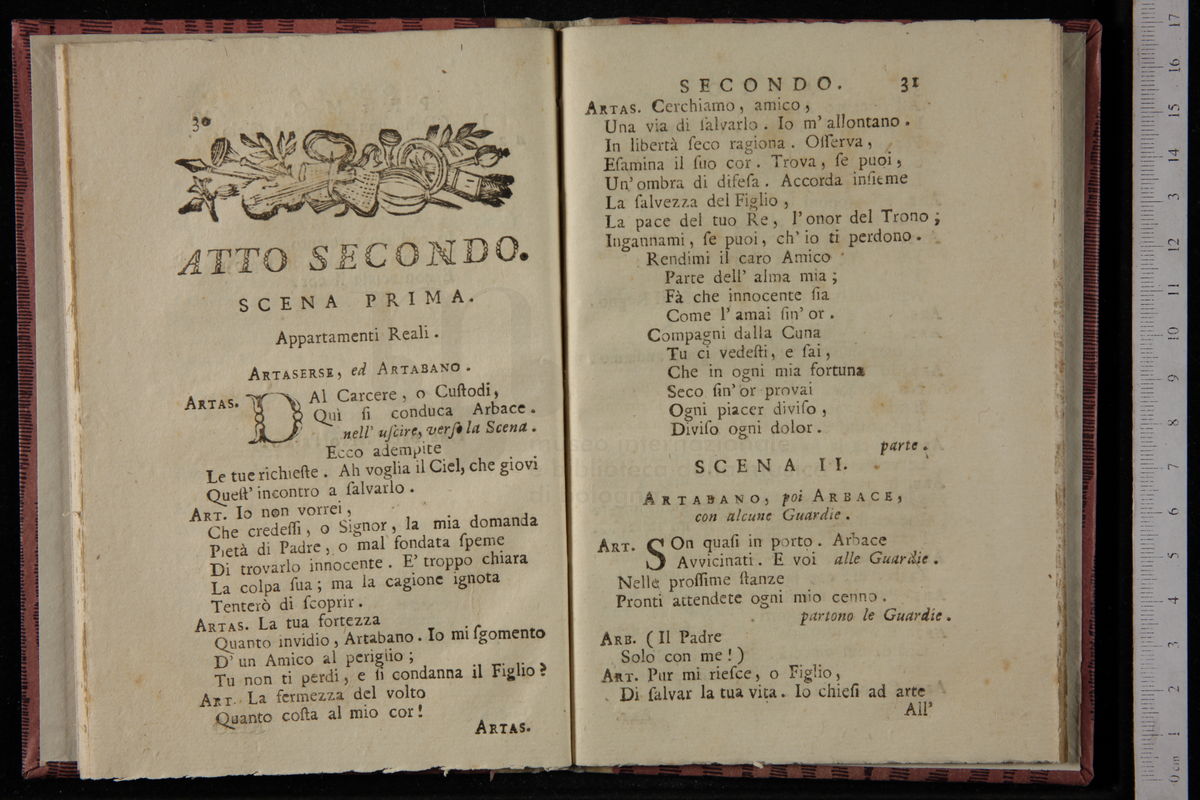 30
ATTO SECONDO.
SCENA PRIMA.
Appartamenti Reali.
ARTASERSE, ed ARTABANO.
ARTAS. DAl Carcere, o Cuſtodi,
Quì ſi conduca Arbace.
nell' uſcire, verſo la Scena.
Ecco adempite
Le tue richieſte. Ah voglia il Ciel, che giovi
Queſt' incontro a ſalvarlo.
ART. Io non vorrei,
Che credeſſi, o Signor, la mia domanda
Pietà di Padre, o mal fondata ſpeme
Di trovarlo innocente. E' troppo chiara
La colpa ſua; ma la cagione ignota
Tenterò di ſcoprir.
ARTAS. La tua fortezza
Quanto invidio, Artabano. Io mi ſgomento
D' un Amico al periglio;
Tu non ti perdi, e ſi condanna il Figlio?
ART. La fermezza del volto
Quanto coſta al mio cor!
ARTAS.
SECONDO. 31
ARTAS. Cerchiamo, amico,
Una via di ſalvarlo. Io m' allontano.
In libertà ſeco ragiona. Oſſerva,
Eſamina il ſuo cor. Trova, ſe puoi,
Un' ombra di difeſa. Accorda inſieme
La ſalvezza del Figlio,
La pace del tuo Re, l' onor del Trono;
Ingannami, ſe puoi, ch' io ti perdono.
Rendimi il caro Amico
Parte dell' alma mia;
Fà che innocente ſia
Come l' amai ſin' or.
Compagni dalla Cuna
Tu ci vedeſti, e ſai,
Che in ogni mia fortuna
Seco ſin' or provai
Ogni piacer diviſo,
Diviſo ogni dolor.
parte.
SCENA II.
ARTABANO, poi ARBACE,
con alcune Guardie.
ART. SOn quaſi in porto. Arbace
Avvicinati. E voi alle Guardie.
Nelle proſſime ſtanze
Pronti attendete ogni mio cenno.
partono le Guardie.
ARB. (Il Padre
Solo con me!)
ART. Pur mi rieſce, o Figlio,
Di ſalvar la tua vita. Io chieſi ad arte
All'
0 cm 1 2 3 4 5 6 7 8 9 10 11 12 3 14 15 16 17